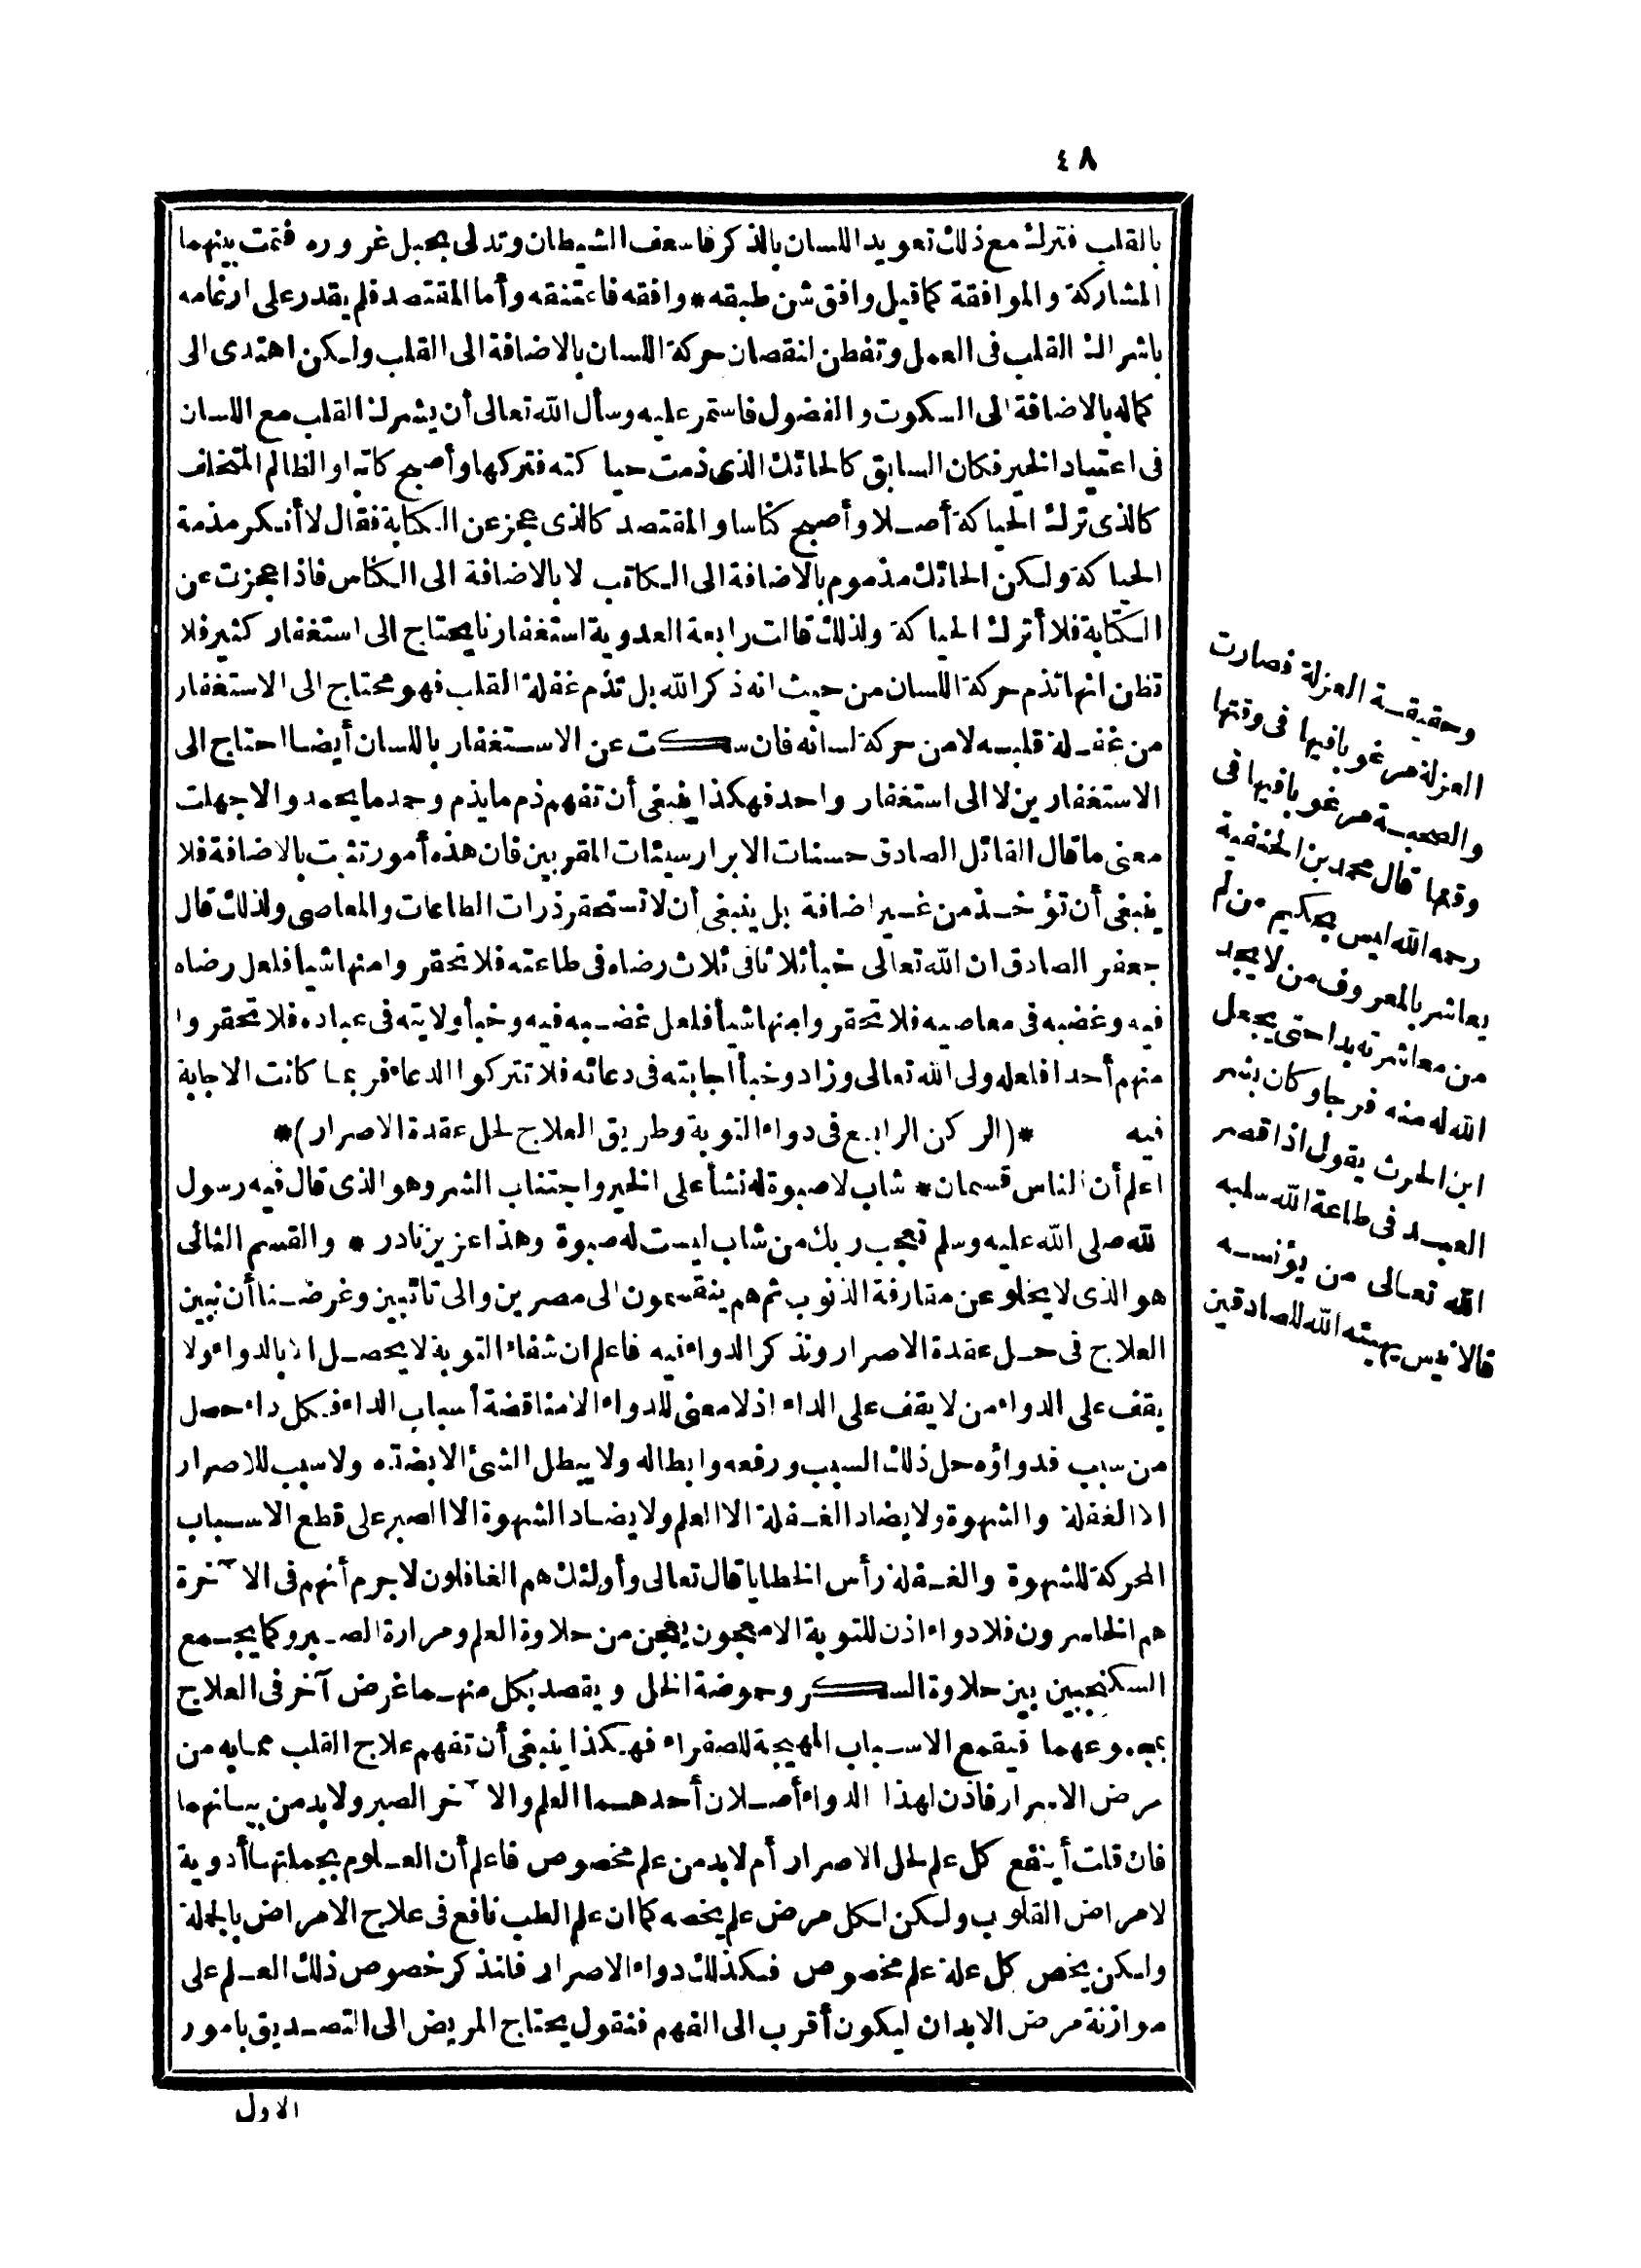 ٤٨
بالقلب فترك مع ذلك تعويد اللسان بالذكر فاسعف الشيطان وتدلى بحبل غروره فتمت بينهما
المشاركة والموافقة كما قيل وافق شن طبقه * وافقه فاعتنقه وأما المقتصد فلم يقدر على ارغامه
باشراك القلب فى العمل وتفطن لنقصان حركة اللسان بالاضافة الى القلب ولكن اهتدى الى
كماله بالاضافة الى السكوت والفضول فاستمر عليه وسأل الله تعالى أن يشرك القلب مع اللسان
فى اعتياد الخير فكان السابق كالحائك الذى ذمت حياكته فتركها وأصبح كاتبا والظالم المتخلف
كالذى ترك الحياكة أصلا وأصبح كناسا والمقتصد كالذى عجز عن الكتابة فقال لا أنكر مذمة
الحياكة ولكن الحائك مذموم بالاضافة الى الكاتب لا بالاضافة الى الكناس فاذا عجزت عن
الكتابة فلا أترك الحياكة ولذلك قالت رابعة العدوية استغفارنا يحتاج الى استغفار كثير فلا
تظن انها تذم حركة اللسان من حيث انه ذكر الله بل تذم غفلة القلب فهو محتاج الى الاستغفار
من غفلة قلبه لا من حركة لسانه فان سكت عن الاستغفار باللسان أيضا احتاج الى
الاستغفارين لا الى استغفار واحد فهكذا ينبغى أن تفهم ذم ما يذم وحمد ما يحمد والا جهلت
معنى ما قال القائل الصادق حسنات الابرار سيئات المقربين فان هذه أمور تثبت بالاضافة فلا
ينبغى أن تؤخذ من غير اضافة بل ينبغى أن لا تستحقر ذرات الطاعات والمعاصى ولذلك قال
جعفر الصادق ان الله تعالى خبأ ثلاثا فى ثلاث رضاه فى طاعته فلا تحقروا منها شيأ فلعل رضاه
فيه وغضبه فى معاصيه فلا تحقروا منها شيأ فلعل غضبه فيه وخبأ ولايته فى عباده فلا تحقروا
منهم أحدا فلعله ولى الله تعالى وزاد وخبأ اجابته فى دعائه فلا تتركوا الدعاء فربما كانت الاجابة
فيه *(الركن الرابع فى دواء التوبة وطريق العلاج لحل عقدة الاصرار)*
اعلم أن الناس قسمان * شاب لا صبوة له نشأ على الخير واجتناب الشر وهو الذى قال فيه رسول
لله صلى الله عليه وسلم تعجب ربك من شاب ليست له صبوة وهذا عزيز نادر * والقسم الثانى
هو الذى لا يخلو عن مقارفة الذنوب ثم هم ينقسمون الى مصرين والى تائبين وغرضنا أن نبين
العلاج فى حل عقدة الاصرار ونذكر الدواء فيه فاعلم ان شفاء التوبة لا يحصل الا بالدواء ولا
يقف على الدواء من لا يقف على الداء اذ لا معنى للدواء الا مناقضة أسباب الداء فكل داء حصل
من سبب فدواؤه حل ذلك السبب ورفعه وابطاله ولا يبطل الشئ الا بضده ولا سبب للاصرار
الا الغفلة والشهوة ولا يضاد الغفلة الا العلم ولا يضاد الشهوة الا الصبر على قطع الاسباب
المحركة للشهوة والغفلة رأس الخطايا قال تعالى وأولئك هم الغافلون لا جرم أنهم فى الآخرة
هم الخاسرون فلا دواء اذن للتوبة الا معجون يعجن من حلاوة العلم ومرارة الصبر وكما يجمع
السكنجبين بين حلاوة السكر وحموضة الخل ويقصد بكل منهما غرض آخر فى العلاج
بمجموعهما فيقمع الاسباب المهيجة للصفراء فهكذا ينبغى أن تفهم علاج القلب مما به من
مرض الاصرار فاذن لهذا الدواء أصلان أحدهما العلم والآخر الصبر ولا بد من بيانهما
فان قلت أينفع كل علم لحل الاصرار أم لا بد من علم مخصوص فاعلم أن العلوم بجملتها أدوية
لامراض القلوب ولكن لكل مرض علم يخصه كما ان علم الطب نافع فى علاج الامراض بالجملة
ولكن يخص كل علة علم مخصوص فكذلك دواء الاصرار فلنذكر خصوص ذلك العلم على
موازنة مرض الابدان ليكون أقرب الى الفهم فنقول يحتاج المريض الى التصديق بامور
الاول
وحقيقة العزلة فصارت
العزلة مرغوبا فيها فى وقتها
والصحبة مرغوبا فيها فى
وقتها قال محمد بن الحنفية
رحمه الله ليس بحكيم من لم
يعاشر بالمعروف من لا يجد
من معاشرته بدا حتى يجعل
الله له منه فرجا وكان بشر
ابن الحرث يقول اذا قصر
العبد فى طاعة الله سلبه
الله تعالى من يؤنسه
فالانيس يهيئه الله للصادقين